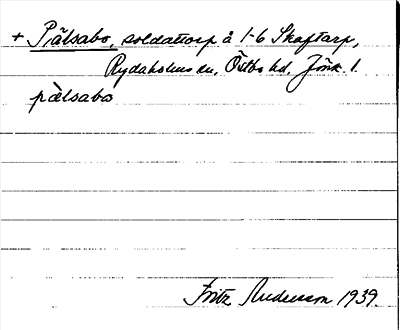 + Pälsabo, soldattorp å 1-6 Skaftarp,
Rydaholms sn, Östbo hd, Jönk. l.
pàlsabo
Fritz Andersson 1939.